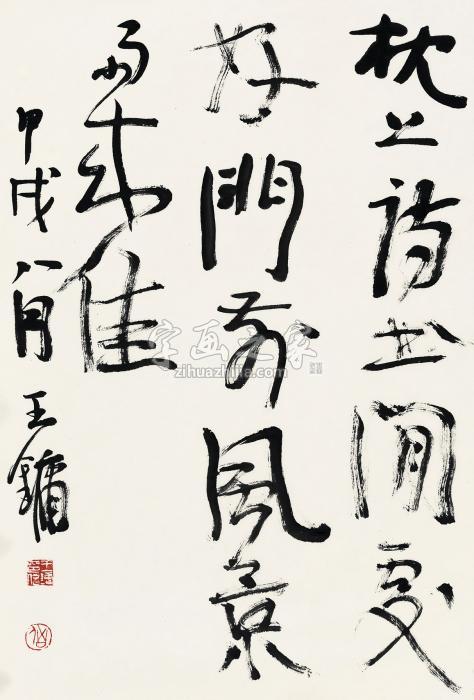 枕上詩書閒處
好門前風景
雨來佳
甲戌八月
王鏞
字画之家
zihuazhijia.com